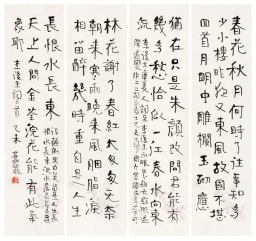 春花秋月何時了往事知多
少小樓昨夜又東風故國不堪
回首月明中雕欄玉砌應
猶在只是朱顏改問君能有
幾多愁恰似一江春水向東
流
林花謝了春紅太匆匆無奈
朝來寒雨晚來風胭脂淚
相留醉幾時重自是人生
長恨水長東
天上人間金荃浣花能有此氣
象耶 李後主詞二首 乙未